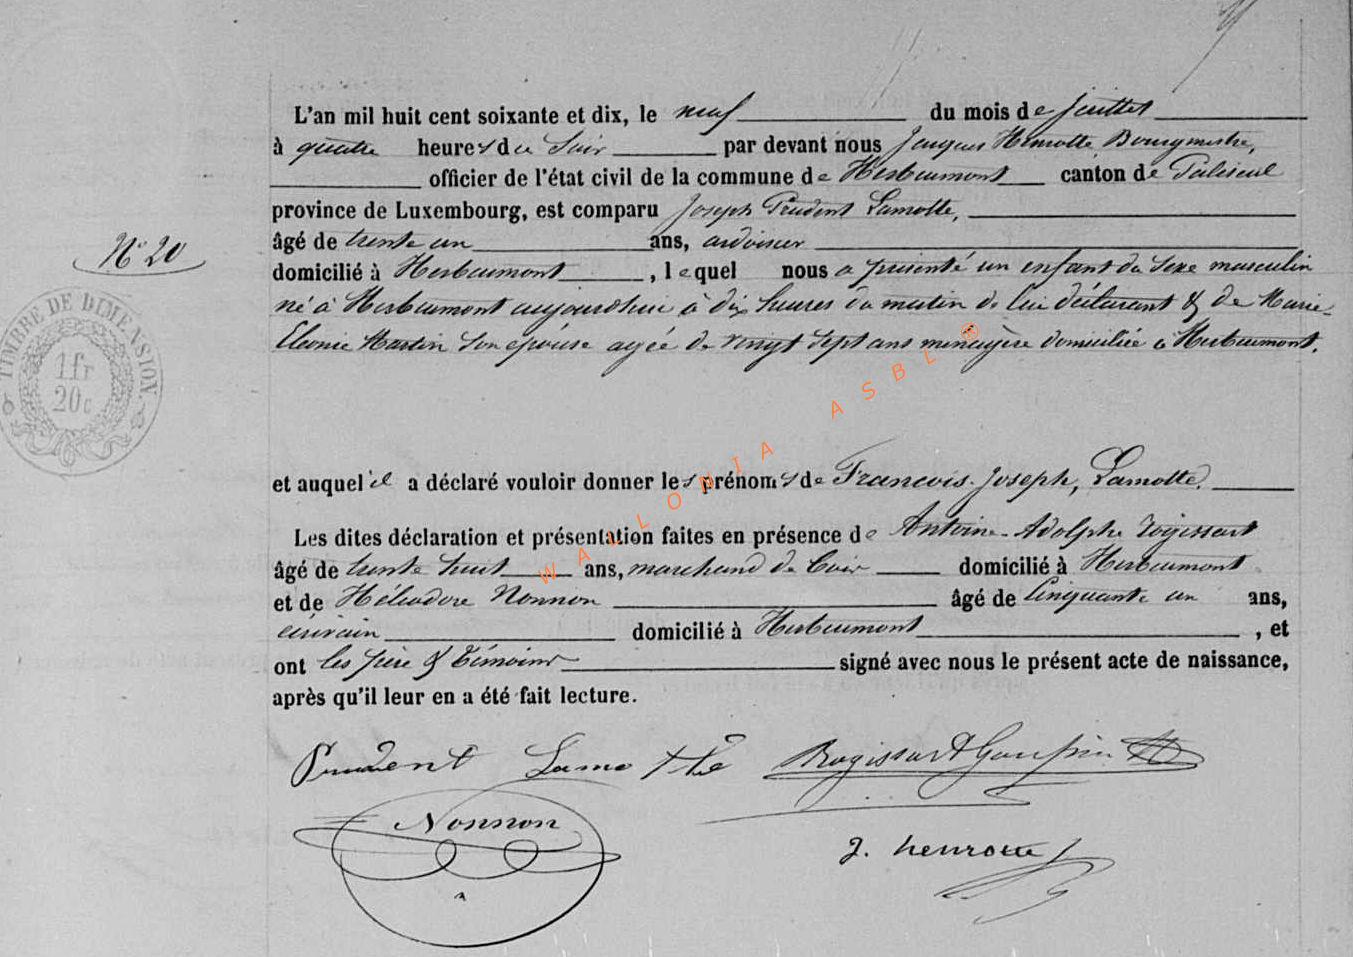 L'an mil huit cent soixante et dix, le neuf du mois de juillet
à quatre heures du Soir par devant nous Jacques Henrotte, Bourgmestre,
officier de l'état civil de la commune de Herbeumont canton de Paliseul
province de Luxembourg, est comparu Joseph Prudent Lamotte,
âgé de trente un ans, ardoisier
N° 20
domicilié à Herbeumont, lequel nous a présenté un enfant du sexe masculin
né à Herbeumont aujourd'hui à dix heures du matin de lui déclarant & de Marie-
Eleonie Martin son épouse agée de vingt sept ans ménagère domiciliée à Herbeumont.
TIMBRE DE DIMENSION
1 fr
20 c
et auquel il a déclaré vouloir donner les prénoms de Francois-Joseph, Lamotte.
Les dites déclaration et présentation faites en présence de Antoine-Adolphe Rogissart
âgé de trente huit ans, marchand de Cuir domicilié à Herbeumont
et de Héliodore Nonnon âgé de Cinquante un ans,
écrivain domicilié à Herbeumont, et
ont les père & témoins signé avec nous le présent acte de naissance,
après qu'il leur en a été fait lecture.
Prudent Lamotte Rogissart
Nonnon
J. henrotte
WALLONIA ASBL ®